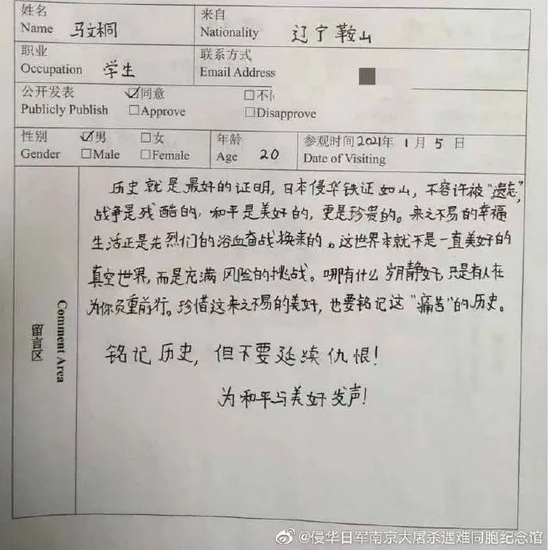 姓名 来自
Name 马文桐 Nationality 辽宁鞍山
职业 联系方式
Occupation 学生 Email Address
公开发表 ☑同意 □不
Publicly Publish □Approve □Disapprove
性别 ☑男 □女 年龄 参观时间2021年1月5日
Gender □Male □Female Age 20 Date of Visiting
历史就是最好的证明,日本侵华铁证如山,不容许被“遗忘,
战争是残酷的,和平是美好的,更是珍贵的。来之不易的幸福
生活正是先烈们的浴血奋战换来的。这世界本就不是一直美好的
真空世界,而是充满风险的挑战。哪有什么岁月静好,只是有人在
为你负重前行。珍惜这来之不易的美好,也要铭记这“痛苦”的历史。
铭记历史,但不要延续仇恨!
为和平与美好发声!
留言区
Comment Area
@侵华日军南京大屠杀遇难同胞纪念馆